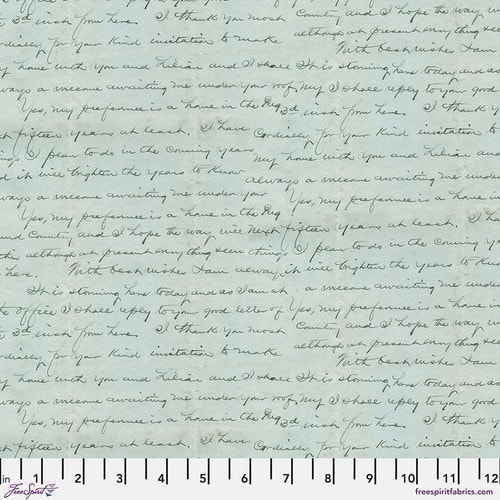 3d inst from here. I thank you most County, and I hope the way will
Cordially, for your kind invitation to make although at present everything seems
With best wishes I am
my home with you and Lilian and I shall It is storming here today and as
always a welcome awaiting me under your roof, My I shall reply to your good
Yes, my preference is a home in the 3d inst from here. I thank
fifteen years at least. I have Cordially, for your kind invitation to
things I plan to do in the coming years my home with you and Lilian and
it will brighten the years to know always a welcome awaiting me under
always a welcome awaiting me under your
Yes, my preference is a home in the Yes, my preference is a home in
and County, and I hope the way will next fifteen years at least. I
although at present everything seems things I plan to do in the coming
here. With best wishes I am always, it will brighten the years to know
It is storming here today and as I am at a welcome awaiting me under your
office I shall reply to your good letter of Yes, my preference is a home
3d inst from here. I thank you most County, and I hope the way will
Cordially, for your kind invitation to make although at present everything
With best wishes I am
my home with you and Lilian and I shall It is storming here today and as
always a welcome awaiting me under your roof, My I shall reply to your good
Yes, my preference is a home in the 3d inst from here. I thank
fifteen years at least. I have Cordially, for your kind invitation to
in 1 2 3 4 5 6 7 8 9 10 11 12
FreeSpirit
freespiritfabrics.com